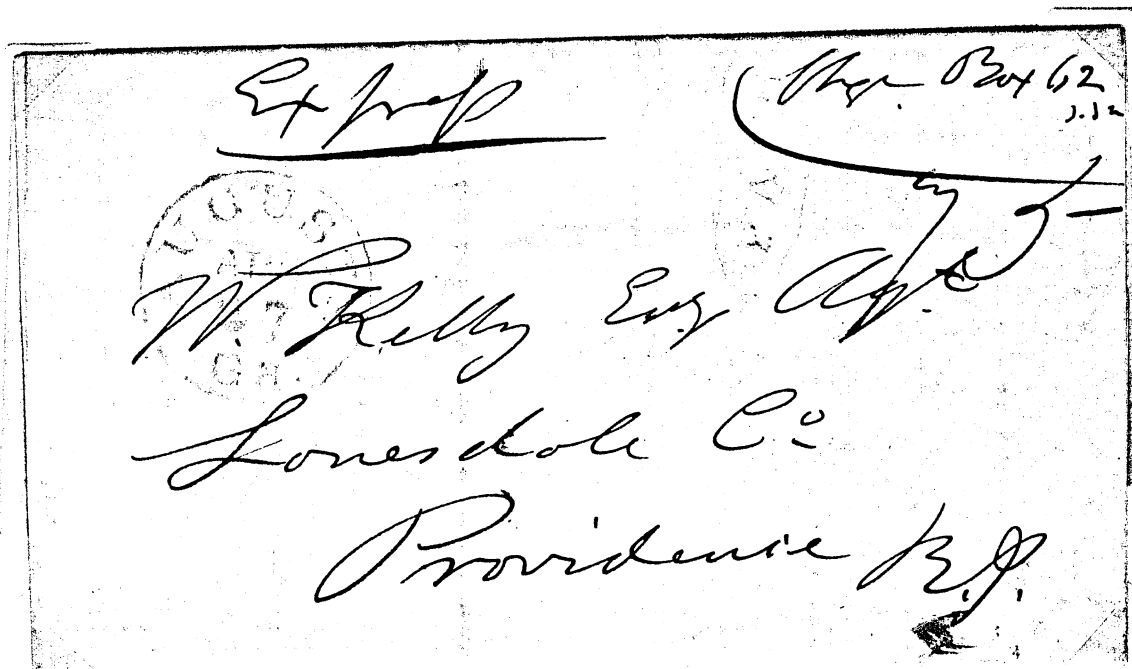 Express
Box 62
W. Kelly Esq Agt.
Lonesdale Co
Providence R.I.